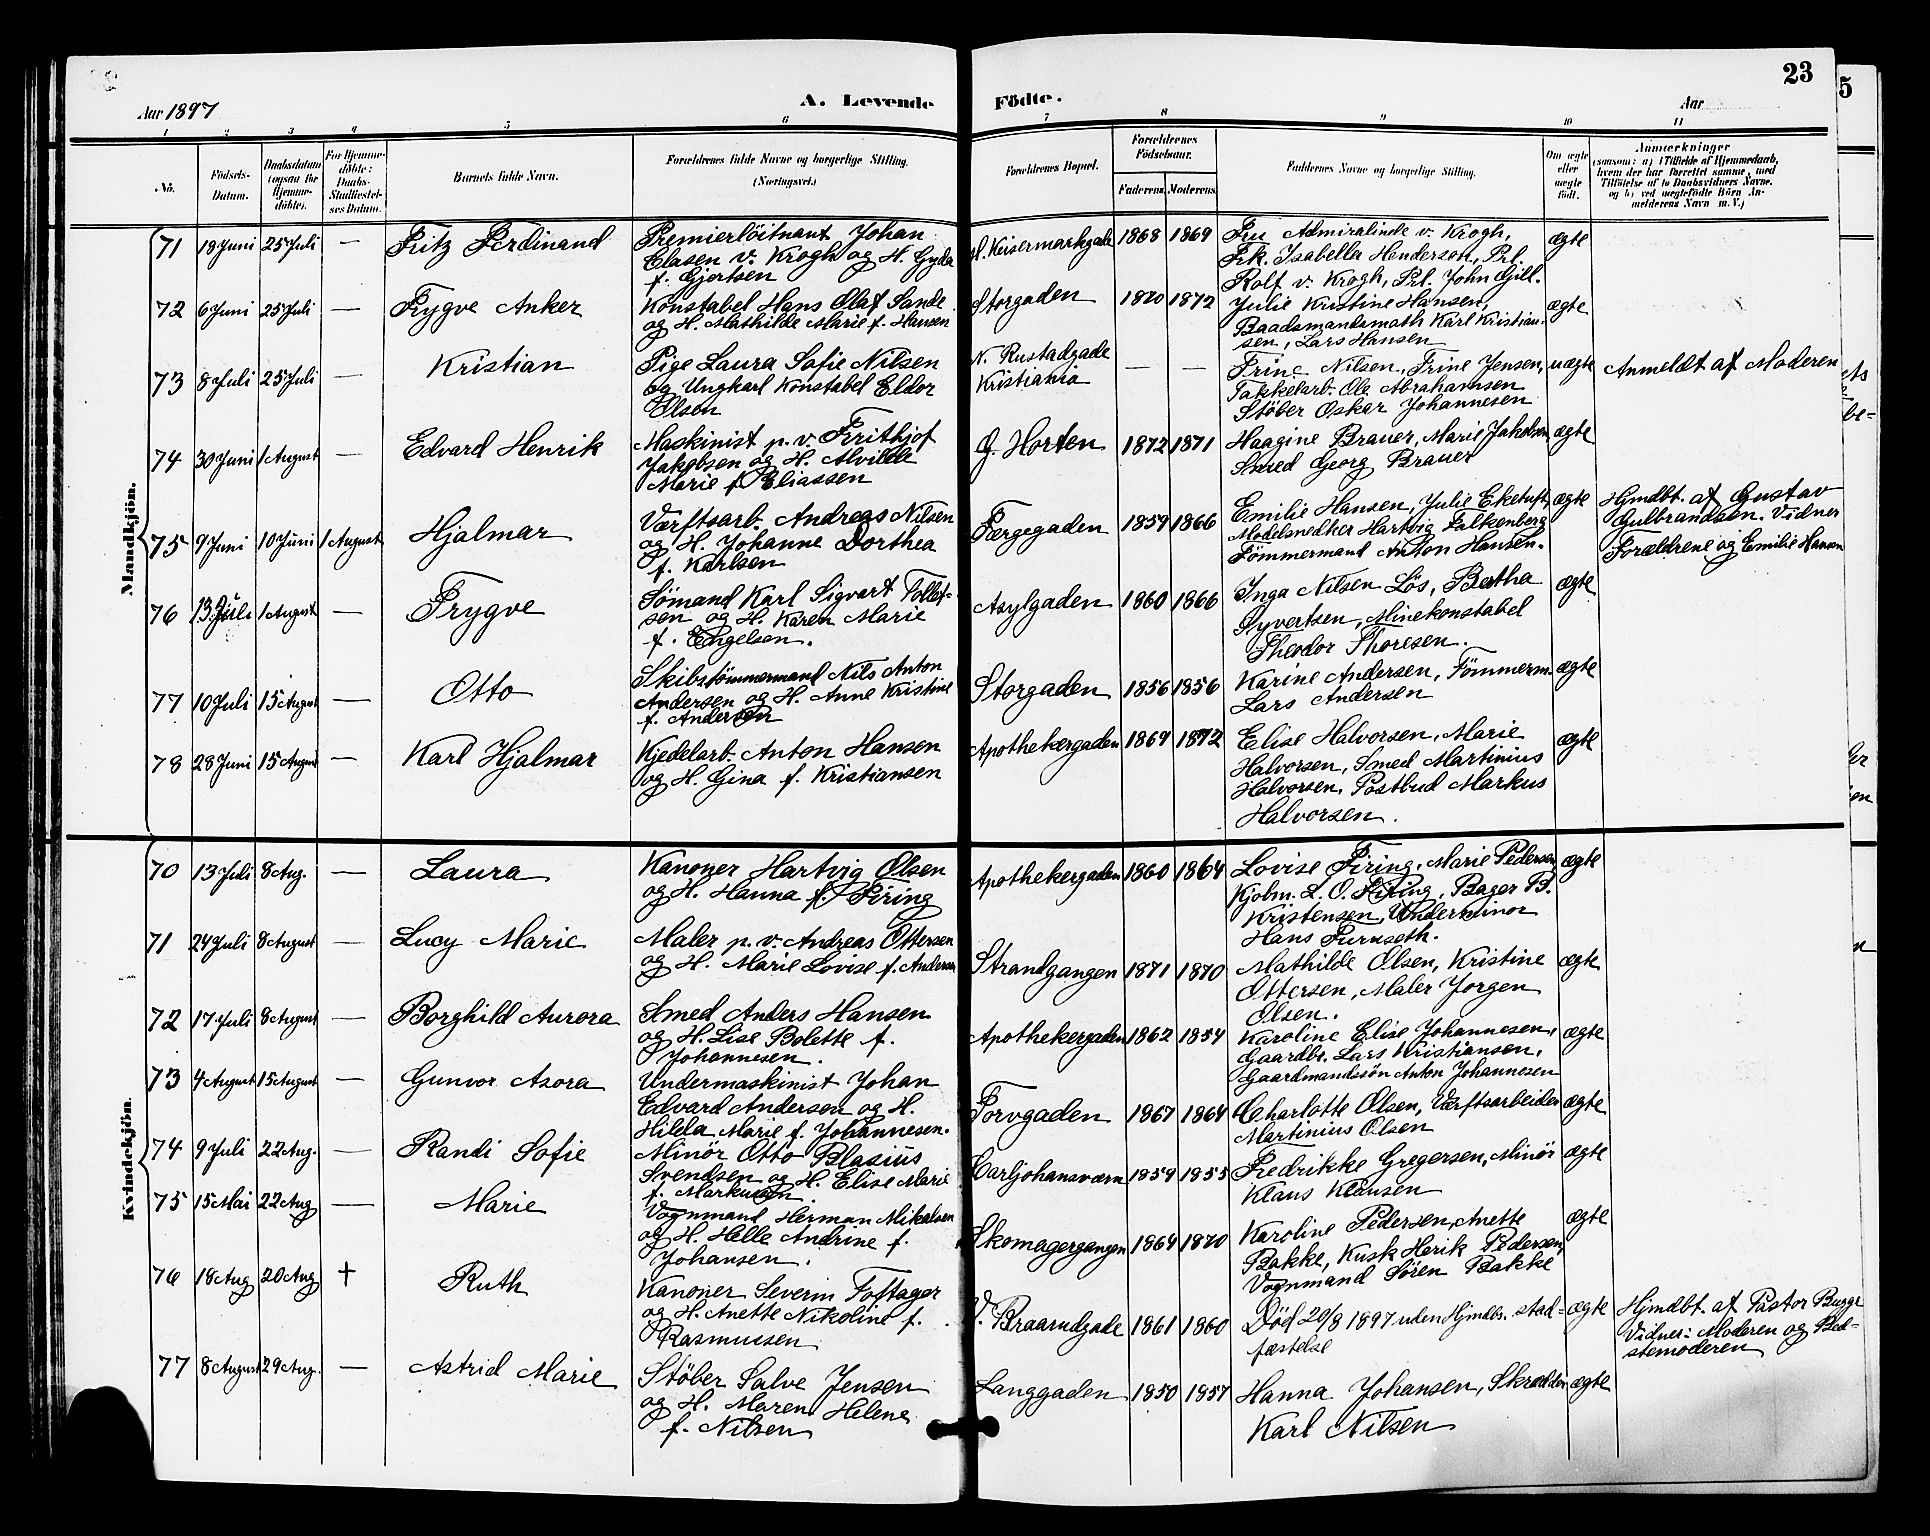 23
5
Aar 1897
A. Levende
Födte.
Aar
1 2 3 4 5 6 7 8 9 10 11
No.
Födsels-Datum.
Daabsdatum (ogsaa for Hjemmedöbte).
For Hjemmedöbte: Daabs-Stadfæstelses Datum.
Barnets fulde Navn.
Forældrenes fulde Navne og borgerlige Stilling. (Næringsvei.)
Forældrenes Bopæl.
Forældrenes Födselsaar.
Faderens. Moderens.
Faddernes Navne og borgerlige Stilling.
Om ægte eller uægte födt.
Anmærkninger
(saasom: a) i Tilfælde af Hjemmedaab, hvem der har forrettet samme, med Tilföielse af to Daabsvidners Navne, og b) ved uægtefödte Börn Anmelderens Navn m. V.)
Mandkjön.
71 18 Juni 25 Juli — Fritz Ferdinand
Premierløitnant Johan
Clasen v. Krogh og H. Gyda
f. Gjertsen
Keisermarkgade 1868 1869
Fru Admiralinde v. Krogh,
Frk. Isabella Henderson, Prl.
Rolf v. Krogh, Prl. John Gill.
ægte
72 6 Juni 25 Juli — Trygve Anker
Konstabel Hans Olaf Sande
og H. Mathilde Marie f. Hansen
Storgaden 1870 1872
Julie Kristine Hansen,
Baadsmandsmath Karl Kristian-
sen, Lars Hansen
ægte
73 8 Juli 25 Juli — Kristian
Pige Laura Sofie Nilsen
og Ungkarl Konstabel Eldor
Olsen
N. Rustadgade
Kristiania
— —
Trine Nilsen, Trine Jensen,
Takkelarb. Ole Abrahamsen
Støber Oskar Johannesen
uægte
Anmeldt af Moderen
74 30 Juni 1 August — Edvard Henrik
Maskinist p. v. Frithjof
Jakobsen og H. Alvilde
Marie f. Eliassen
G. Horten 1872 1871
Haagine Brauer, Marie Jakobsen
Smed Georg Brauer
ægte
75 9 Juni 10 Juni 1 August Hjalmar
Værftsarb. Andreas Nilsen
og H. Johanne Dorthea
f. Karlsen
Færgegaden 1859 1866
Emilie Hansen, Julie Eketuft,
Modelsnedker Hartvig Falkenberg
Tømmermand Anton Hansen.
ægte
Hjmdbt. af Gustav
Gulbrandsen. Vidner
Forældrene og Emilie Hansen
76 13 Juli 1 August — Trygve
Sømand Karl Sigvart Tollef-
sen og H. Karen Marie
f. Engelsen.
Asylgaden 1860 1866
Inga Nilsen Løs, Bertha
Syvertsen, Minekonstabel
Theodor Thoresen.
ægte
77 10 Juli 15 August — Otto
Skibstømmermand Nils Anton
Andersen og H. Anne Kristine
f. Andersen
Storgaden 1856 1856
Karine Andersen, Tømmerm.
Lars Andersen
ægte
78 28 Juni 15 August — Karl Hjalmar
Kjedelarb. Anton Hansen
og H. Gina f. Kristiansen
Apothekergaden 1869 1872
Elise Halvorsen, Marie
Halvorsen, Smed Martinius
Halvorsen, Postbud Markus
Halvorsen.
ægte
Kvindekjön.
70 13 Juli 8 Aug. — Laura
Kanoner Hartvig Olsen
og H. Hanna f. Firing
Apothekergaden 1860 1864
Lovise Firing, Marie Pedersen
Kjøbm. L. O. Firing, Bager B.
Kristensen, Underminor
Hans Furuseth.
ægte
71 24 Juli 8 August — Lucy Marie
Maler p. v. Andreas Ottersen
og H. Marie Lovise f. Andersen
Strandgangen 1871 1870
Mathilde Olsen, Kristine
Ottersen, Maler Jørgen
Olsen.
ægte
72 17 Juli 8 August — Borghild Aurora
Smed Anders Hansen
og H. Lise Bolette f.
Johannesen.
Apothekergaden 1862 1854
Karoline Elise Johannesen,
Gaardbr. Lars Kristiansen,
Gaardmandssøn Anton Johannesen
ægte
73 4 August 15 August — Gunvor Asora
Undermaskinist Johan
Edvard Andersen og H.
Hilda Marie f. Johannesen.
Torvgaden 1867 1864
Charlotte Olsen, Værftsarbeider
Martinius Olsen
ægte
74 9 Juli 22 Aug. — Randi Sofie
Minør Otto Blasius
Svendsen og H. Elise Marie
f. Markussen.
Carljohansværn 1859 1855
Fredrikke Gregersen, Minør
Klaus Klausen
ægte
75 15 Mai 22 Aug — Marie
Vognmand Herman Mikalsen
og H. Helle Andrine f.
Johansen.
Skomagergangen 1869 1870
Karoline Pedersen, Anette
Bakke, Kusk Henrik Pedersen,
Vognmand Søren Bakke
ægte
76 18 Aug 20 Aug † Ruth
Kanoner Severin Toftager
og H. Anette Nikoline f.
Rasmussen
V. Braarudgade 1861 1860
Død 20/8 1897 uden Hjmdbs. stad-
fæstelse
ægte
Hjmdbt. af Pastor
Vidner: Moderen og Bed-
stemoderen
77 8 August 29 Aug. — Astrid Marie
Støber Salve Jensen
og H. Maren Helene
f. Nilsen
Langgaden 1850 1857
Hanna Johansen, Skrædder
Karl Nilsen
ægte